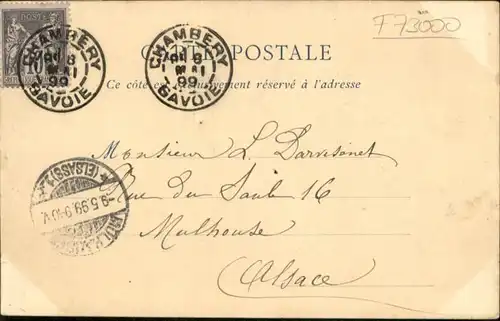 F73000
CARTE POSTALE
CHAMBERY
8
MAI
99
SAVOIE
CHAMBERY
8
MAI
99
SAVOIE
Ce côté est exclusivement réservé à l'adresse
Monsieur L.
Rue du Saule 16
Mulhouse
Alsace
(ELSASS)
9.5.99